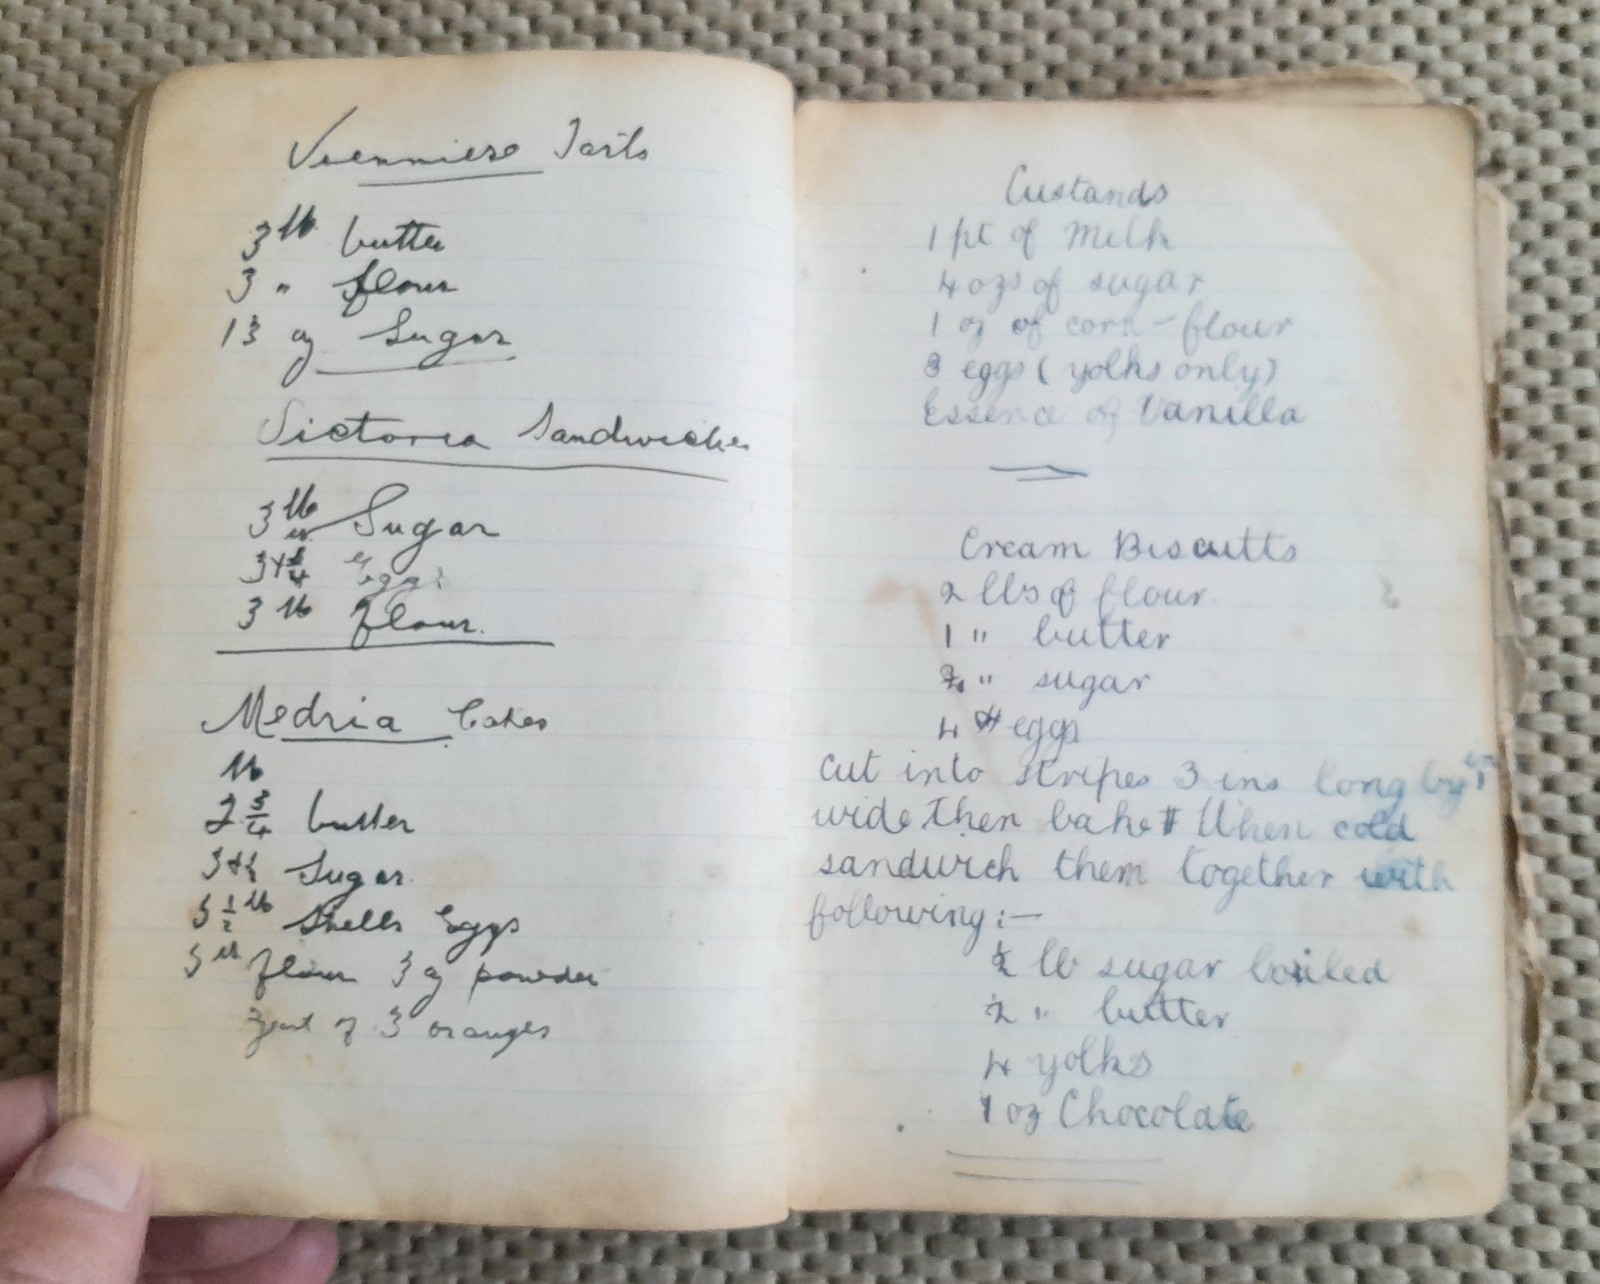 Vienniese Tarts
3 lb butter
3 " flour
13 oz Sugar
Victoria Sandwiches
3 lb Sugar
Eggs
3 lb flour.
Medria Cakes
lb
2 3/4 butter
Sugar.
3 1/2 lb Shells Eggs
3 lb flour 3 oz powder
Zest of 3 oranges
Custands
1 pt of Milk
4 ozs of sugar
1 oz of corn-flour
3 eggs (yolks only)
Essence of Vanilla
Cream Biscuitts
2 lbs of flour.
1 " butter
" sugar
4 eggs
cut into stripes 3 ins long by 1 in
wide. Then bake When cold
sandwich them together with
following :-
1/2 lb sugar boiled
1/2 " butter
4 yolks
1 oz Chocolate